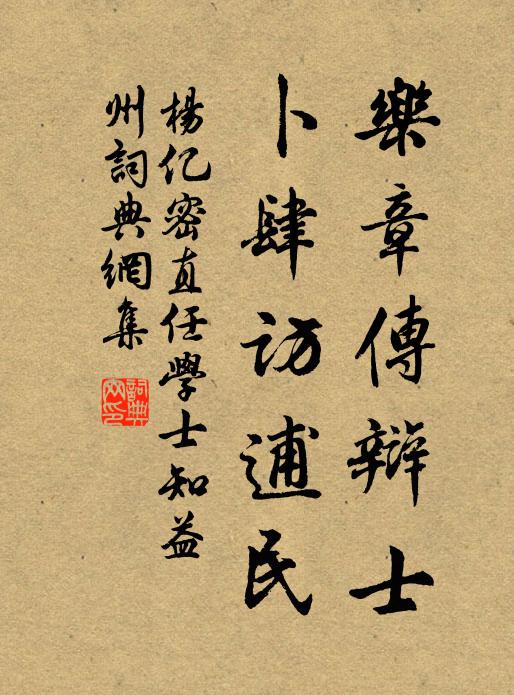 樂章傳辯士
卜肆訪逋民
楊亿密直任學士知益
州詞典網集
詞典网印